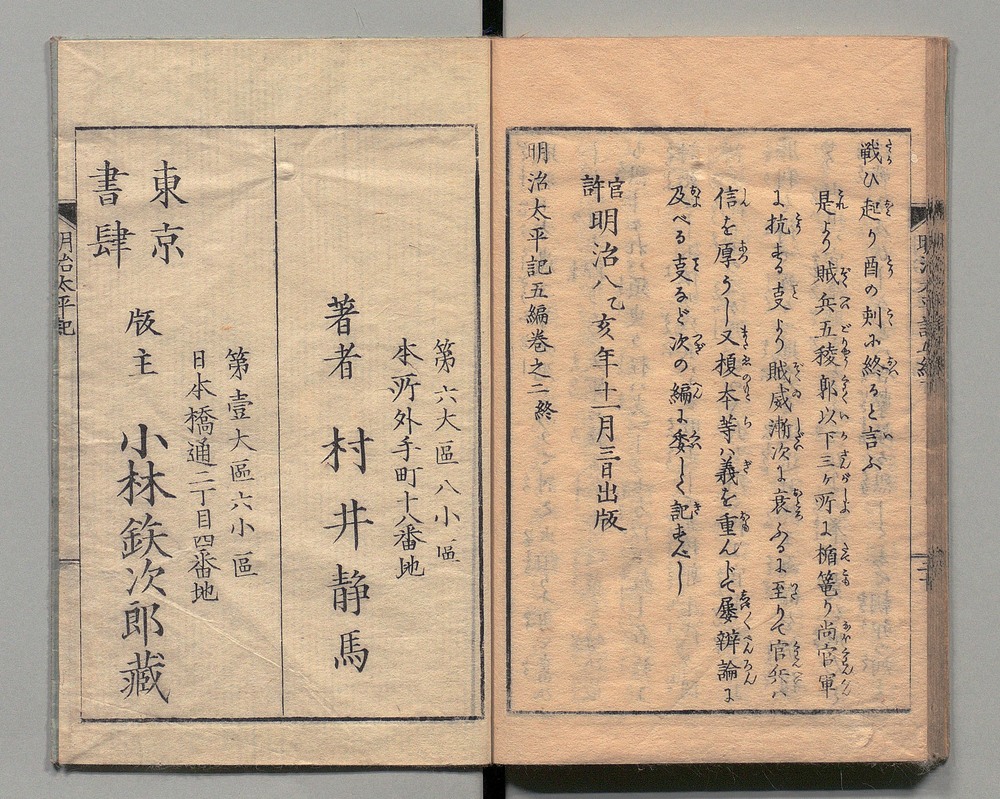 戦ひ起り酉の刻に終ると言ふ
是より賊兵五稜郭以下三ヶ所に楯篭り尚官軍
に抗する叓より賊威漸次に衰ふるに至りて官兵ハ
信を厚うし又榎本等ハ義を重んじて屡辨論に
及べる叓など次の編に委しく記すべし
官許 明治八乙亥年十一月三日出版
明治太平記五編巻之二終
明治太平記
第六大區八小區
本所外手町十八番地
著者 村井静馬
第壹大區六小區
日本橋通二丁目四番地
東京
書肆
版主 小林鉃次郎藏
明治太平記